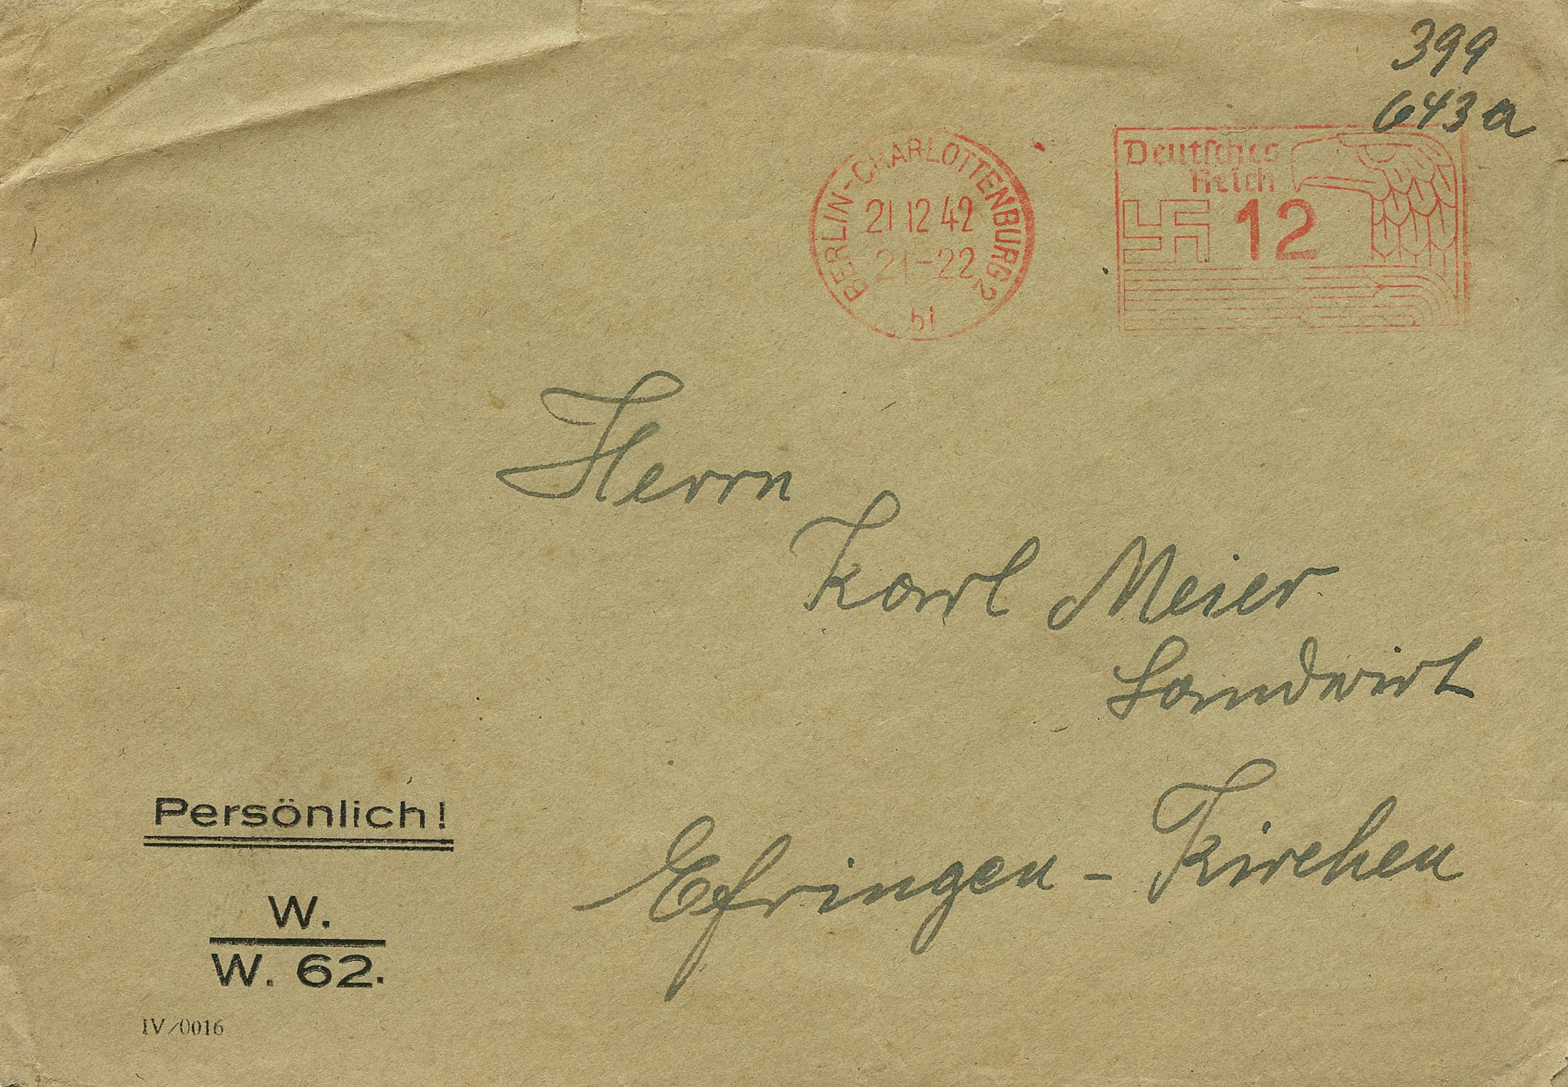 399
643a
BERLIN-CHARLOTTENBURG 2
21 12 42
21-22
bi
Deutsches
Reich
12
Herrn
Karl Meier
Landwirt
Efringen-Kirchen
Persönlich!
W.
W. 62.
IV/0016